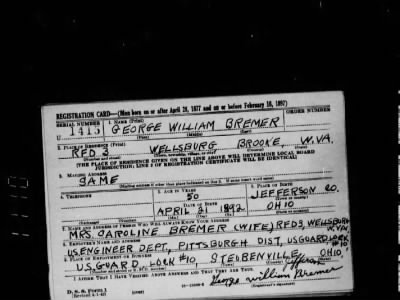 REGISTRATION CARD—(Men born on or after April 28, 1877 and on or before February 16, 1897)
SERIAL NUMBER 1. NAME (Print) ORDER NUMBER
U 1413 GEORGE WILLIAM BREMER
(First) (Middle) (Last)
2. PLACE OF RESIDENCE (Print)
RFD 3 WELLSBURG BROOKE, W.VA.
(THE PLACE OF RESIDENCE GIVEN ON THE LINE ABOVE WILL DETERMINE LOCAL BOARD
JURISDICTION; LINE 2 OF REGISTRATION CERTIFICATE WILL BE IDENTICAL)
3. MAILING ADDRESS
SAME
4. TELEPHONE 5. AGE IN YEARS 6. PLACE OF BIRTH
50 JEFFERSON CO.
DATE OF BIRTH
APRIL 21 1892 OHIO
7. NAME AND ADDRESS OF PERSON WHO WILL ALWAYS KNOW YOUR ADDRESS
MRS. CAROLINE BREMER (WIFE) RFD3, WELLSBURG W.VA
8. EMPLOYER'S NAME AND ADDRESS
US.ENGINEER DEPT, PITTSBURGH DIST, US.GUARD, LOCK #10
9. PLACE OF EMPLOYMENT OR BUSINESS
U.S. GUARD LOCK #10, STEUBENVILLE, Jefferson OHIO,
I AFFIRM THAT I HAVE VERIFIED ABOVE ANSWERS AND THAT THEY ARE TRUE.
D. S. S. Form 1
(Revised 4-1-42) George William Bremer